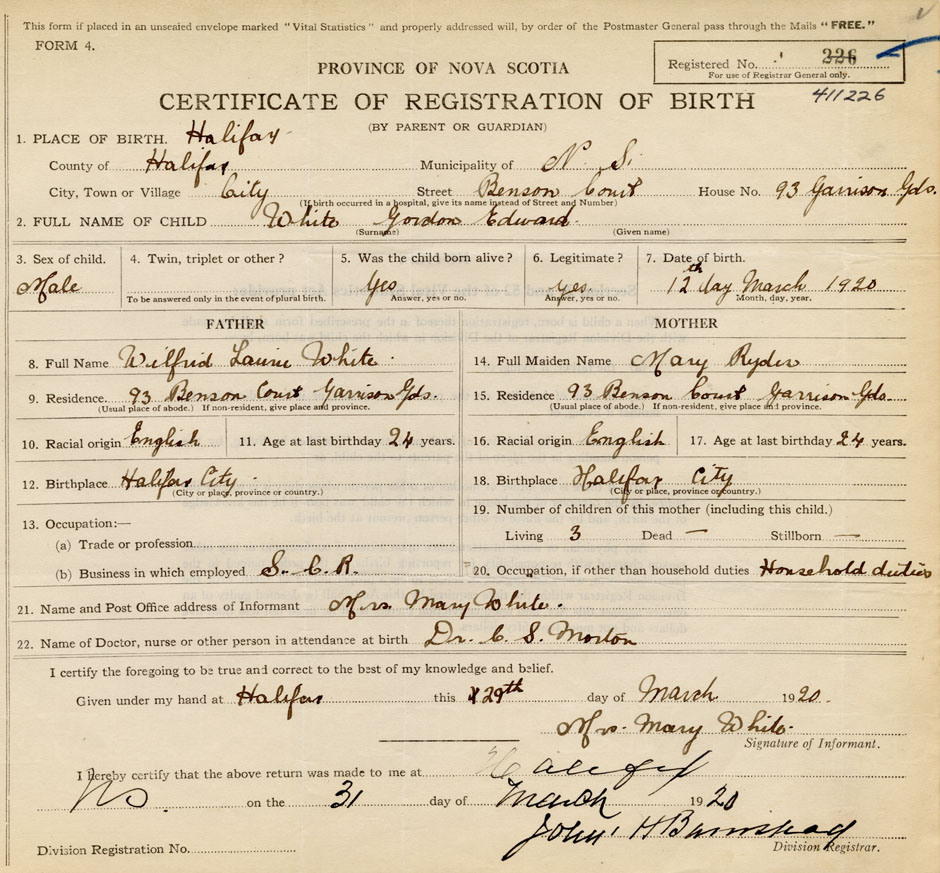 This form if placed in an unsealed envelope marked "Vital Statistics" and properly addressed will, by order of the Postmaster General pass through the Mails "FREE."
FORM 4.
Registered No. 226
For use of Registrar General only.
411226
PROVINCE OF NOVA SCOTIA
CERTIFICATE OF REGISTRATION OF BIRTH
(BY PARENT OR GUARDIAN)
1. PLACE OF BIRTH. Halifax
County of Halifax Municipality of N. S.
City, Town or Village City Street Benson Court House No. 93 Garrison Gds.
(If birth occurred in a hospital, give its name instead of Street and Number)
2. FULL NAME OF CHILD White Gordon Edward
(Surname) (Given name)
3. Sex of child. 4. Twin, triplet or other? 5. Was the child born alive? 6. Legitimate? 7. Date of birth.
Male Yes yes. 12th day March 1920
To be answered only in the event of plural birth. Answer, yes or no. Answer, yes or no. Month, day, year.
FATHER MOTHER
8. Full Name Wilfrid Laurie White 14. Full Maiden Name Mary Ryder
9. Residence. 93 Benson Court Garrison Gds. 15. Residence 93 Benson Court Garrison Gds.
(Usual place of abode.) If non-resident, give place and province. (Usual place of abode.) If non-resident, give place and province.
10. Racial origin English 11. Age at last birthday 24 years. 16. Racial origin English 17. Age at last birthday 24 years.
12. Birthplace Halifax City 18. Birthplace Halifax City
(City or place, province or country.) (City or place, province or country.)
13. Occupation:— 19. Number of children of this mother (including this child.)
(a) Trade or profession Living 3 Dead — Stillborn —
(b) Business in which employed S. C. R. 20. Occupation, if other than household duties Household duties
21. Name and Post Office address of Informant Mrs. Mary White.
22. Name of Doctor, nurse or other person in attendance at birth Dr. C. S. Morton
I certify the foregoing to be true and correct to the best of my knowledge and belief.
Given under my hand at Halifax this 29th day of March 1920.
Mrs. Mary White
Signature of Informant.
I hereby certify that the above return was made to me at Halifax
NS. on the 31 day of March 1920
John H Barnstead
Division Registration No. Division Registrar.